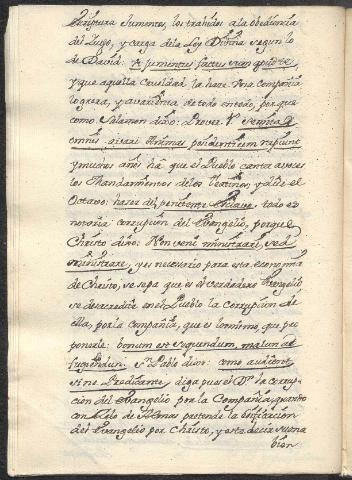 Scriptura Jumentos, los trahidos a la obediencia
del Iugo, y carga de la Ley Divina segun lo
de David: Ut jumentum factus sum apud te,
y que aquella crueldad la hace una Compañia
logrera, y avarienta de todo en todo, porque
como Salomon dixo: Prover. 1.
omnis avari Animas possidentium rapiunt
y muchos años ha que el Pueblo canta a voces
los Mandamientos de los Teatinos, y al es el
Octavo: hacer del penitente esclavo, todo es
notoria corrupcion del Evangelio, porque
Christo dixo: Non veni ministrari, sed
ministrare, y es necesario para esta economia
de Christo, se sepa que es Verdadero Evangelio
se desacredite en el Pueblo la corrupcion de
ella, por la Compañia, que es lo mismo, que pro
ponerle: bonum est sequendum, malum est
fugiendum. Sn. Pablo dixo: como audient
sine Predicante, diga pues el Dr. la corrup
cion del Evangelio por la Compañia, quanto
con Zelo de Almas pretende la edificacion
del Evangelio por Christo, y esta decir suena
bien